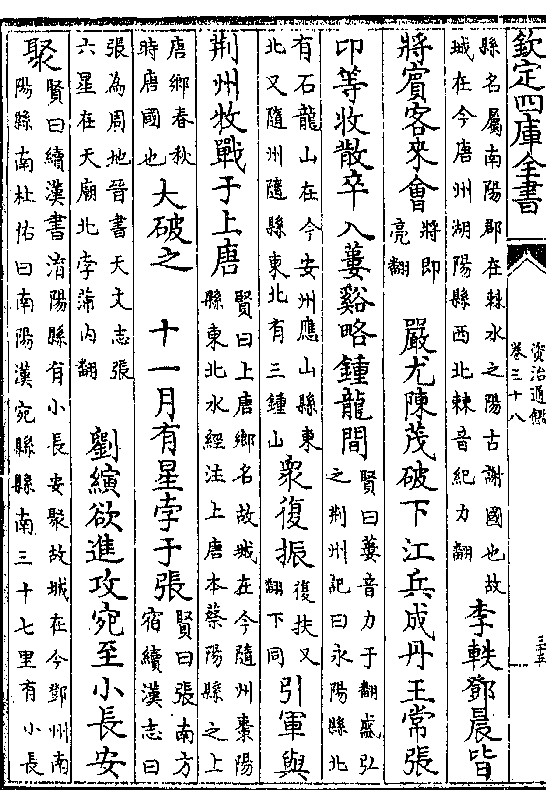 欽定四庫全書
資治通鑑
卷三十八
三十五
縣名屬南陽郡在棘水之陽古謝國也故
城在今唐州湖陽縣西北棘音紀力翻
李軼鄧晨皆
將賓客來會
將即
亮翻
嚴尤陳茂破下江兵成丹王常張
卬等收散卒入蔞谿略鍾龍間
賢曰蔞音力于翻盛弘
之荆州記曰永陽縣北
有石龍山在今安州應山縣東
北又隨州隨縣東北有三鍾山
衆復振
復扶又
翻下同
引軍與
荆州牧戰于上唐
賢曰上唐鄉名故城在今隨州棗陽
縣東北水經注上唐本蔡陽縣之上
唐鄉春秋
時唐國也
大破之
十一月有星孛于張
賢曰張南方
宿續漢志曰
張為周地晉書天文志張
六星在天廟北孛蒲内翻
劉縯欲進攻宛至小長安
聚
賢曰續漢書淯陽縣有小長安聚故城在今鄧州南
陽縣南杜佑曰南陽漢宛縣縣南三十七里有小長